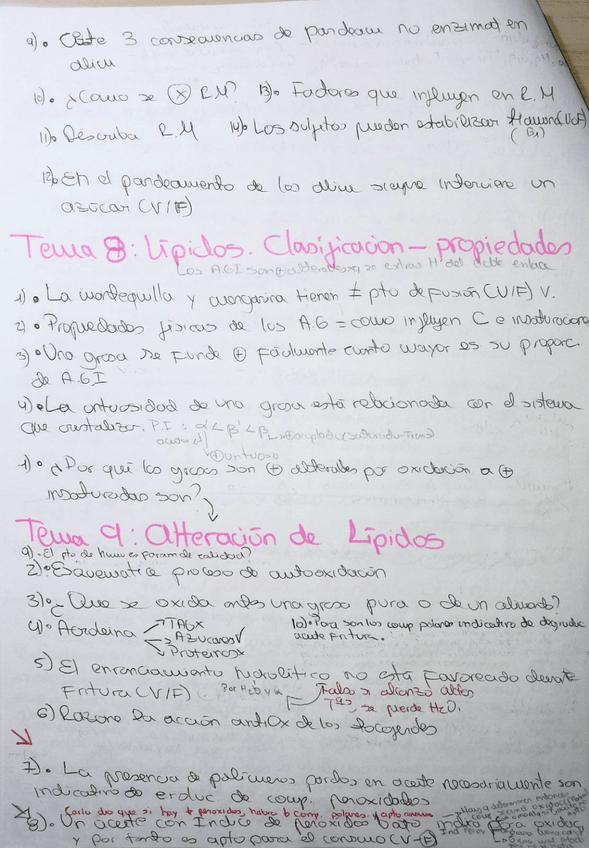 9). Cite 3 consecuencias de pardeam no enzimat en
alim
10). ¿Como se ⊗ R.M? 13). Factores que influyen en R.M
11). Describa R.M 14). Los sulfitos pueden estabilizar (V/F)
(B1)
12). En el pardeamiento de los alim siempre interviene un
azúcar (V/F)
Tema 8: Lípidos. Clasificacion - propiedades
Los A.G.I son ⊕ alterables, se extrae H del doble enlace
1). La mantequilla y margarina tienen ≠ pto de fusión (V/F) V.
2). Propiedades físicas de los A.G = como influyen C e insaturacione
3). Una grasa se funde ⊕ facilmente cuanto mayor es su proporc
de A.G.I
4). La untuosidad de una grasa está relacionada con el sistema
que cristalizar. P.I: α < β' < β
⊕ untuoso
1). ¿Por qué las grasas son ⊕ alterables por oxidación a ⊕
insaturadas son?
Tema 9: Alteración de Lípidos
9). El pto de humo es param de calidad?
2). Esquematice proceso de autooxidación
3). ¿Que se oxida antes una grasa pura o de un alimento?
4). Acroleina → TAGx 10). Por son los comp polares indicativo de degradac
→ Azucares✓ aceite fritura.
→ Proteinasx
5) El enranciamiento hidrolítico no está favorecido durante
Fritura (V/F) Por H2O y la Falso si alcanzo altas
Tªs, se pierde H2O.
6) Razone la acción antiOx de los tocoferoles
7). La presencia de polimeros pardos en aceite necesariamente son
indicativo de de comp. peroxidados
si hay peroxidos, habra comp. polares y apto
8). Un aceite con Indice de peroxidos bajo poco oxidac
y por tanto es apto para el consumo (V-F)